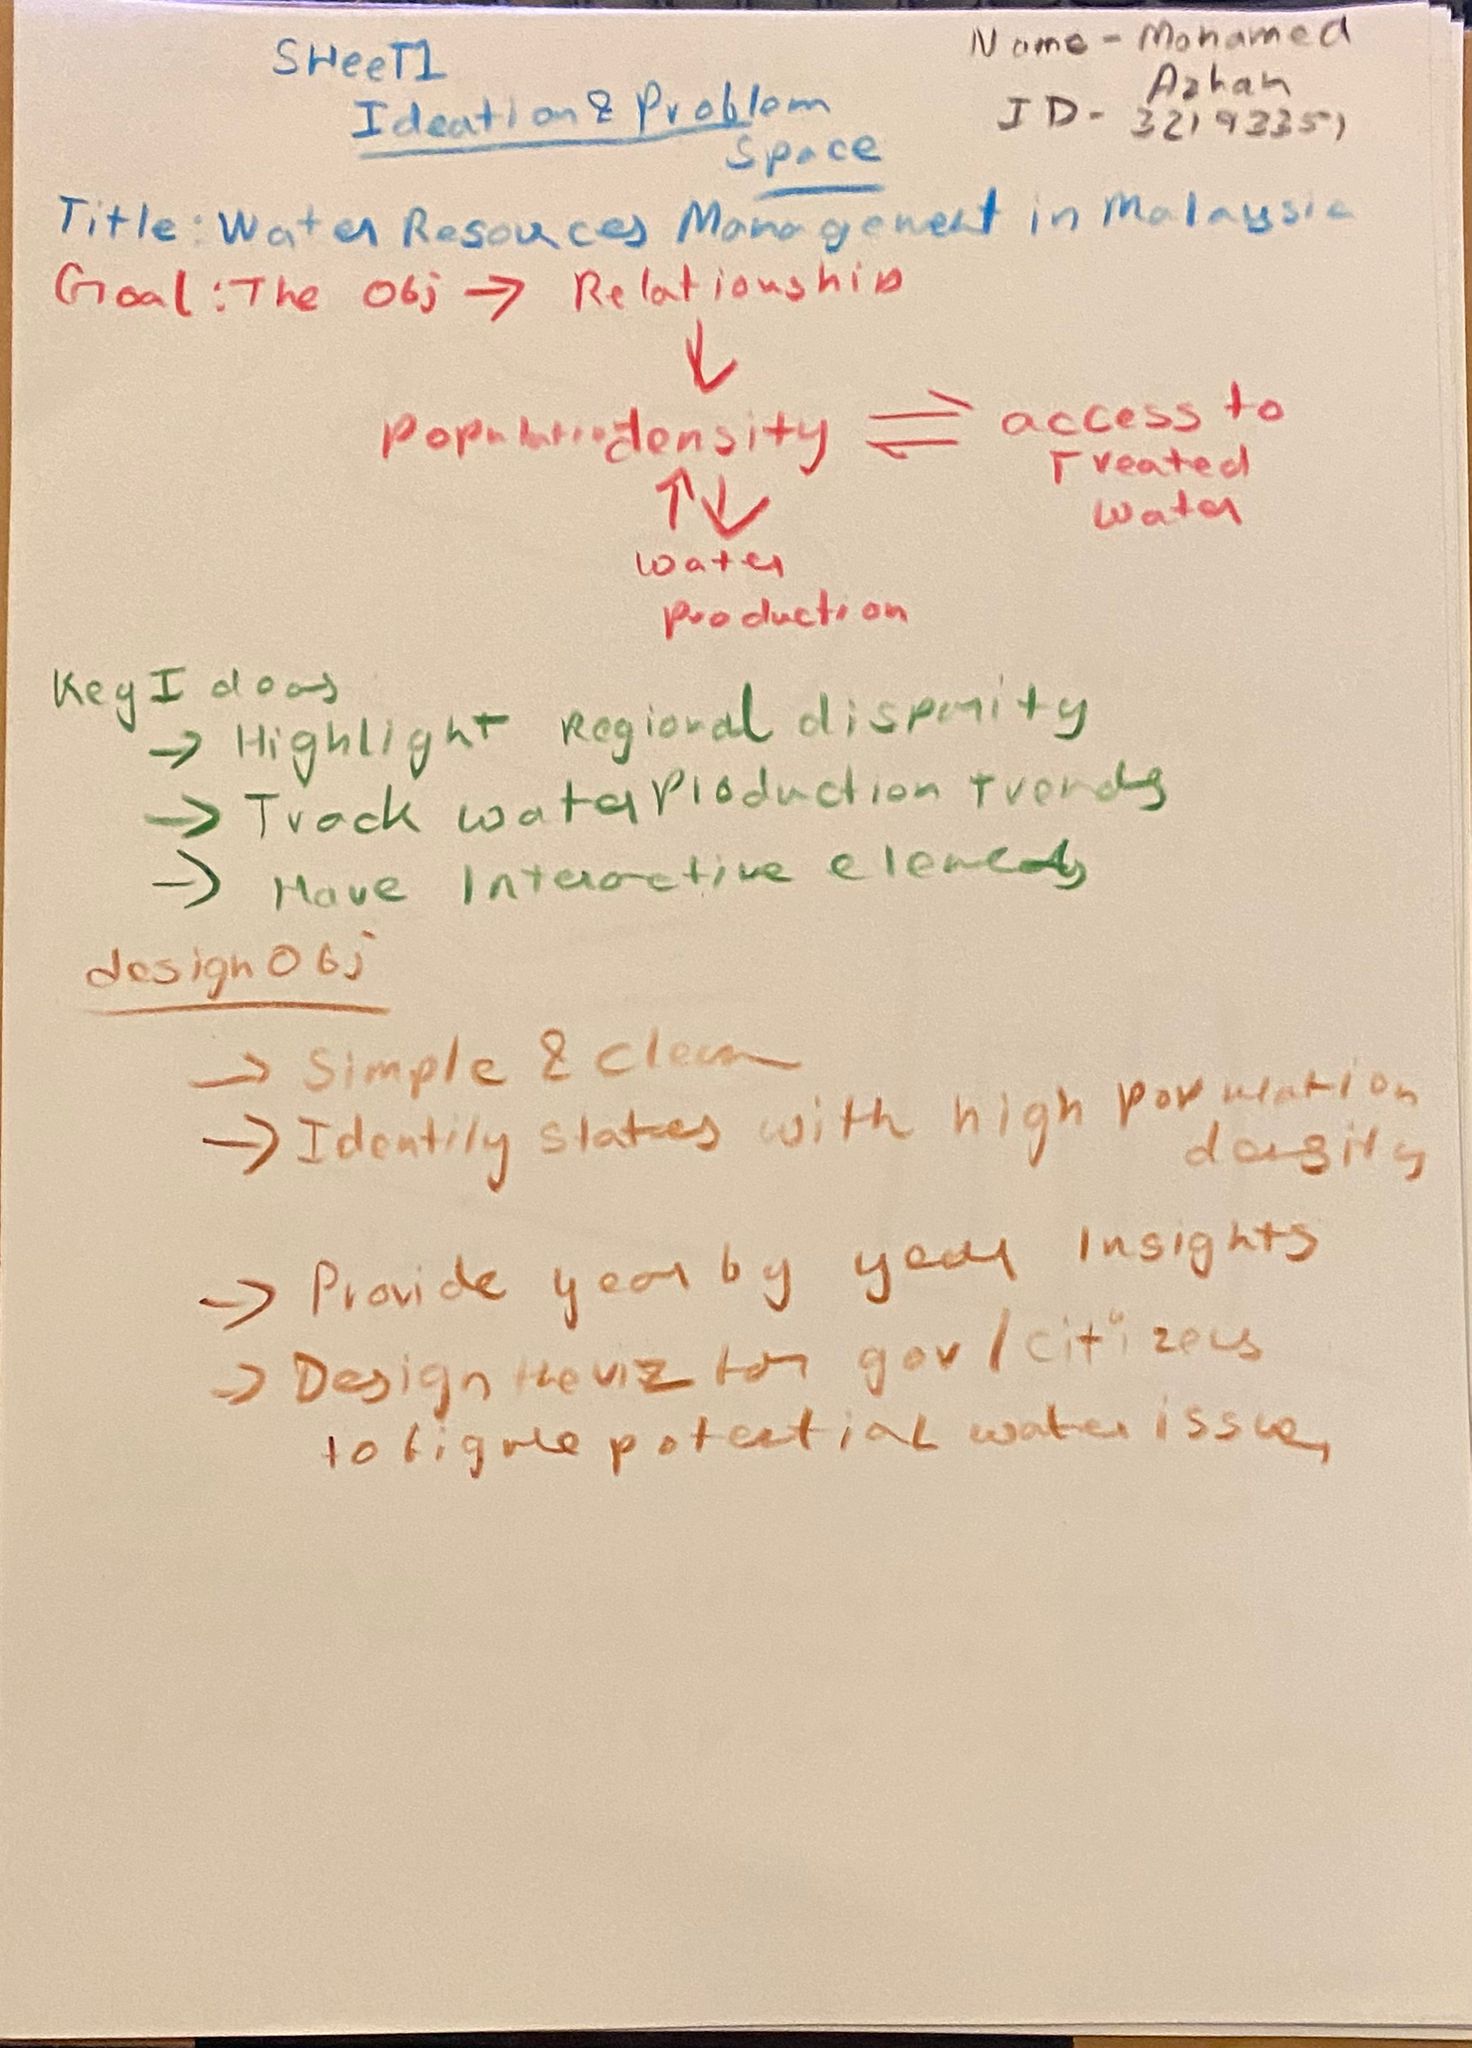 SHeeT1
Name - Mohamed
Azhan
Ideation & Problem
Space
ID - 32193351
Title: Water Resources Management in Malaysia
Goal: The Obj → Relationship
↓
Population density ⇌ access to
Treated
water
↑↓
water
production
Key Ideas
→ Highlight Regional disparity
→ Track water Production Trends
→ Have Interactive elements
design Obj
→ Simple & clean
→ Identify states with high population
density
→ Provide year by year Insights
→ Design the viz for gov / citizens
to figure potential water issues